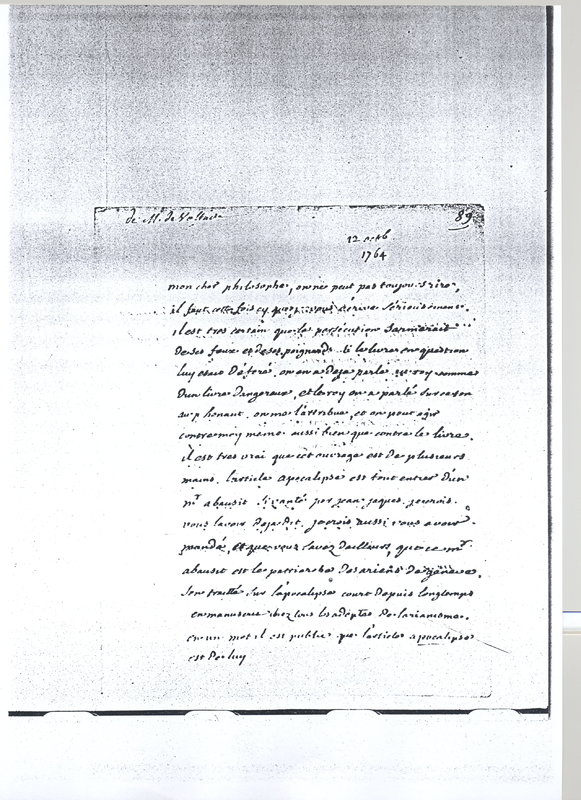 de M. de Voltaire
89
12 octb
1764
mon cher philosophe, on ne peut pas toujours rire,
il faut cette fois cy que je vous écrive sérieusement.
il est tres certain que la persécution s'armerait
de ses feux et de ses poignards si le livre en question
luy etait déferé. on en a deja parlé au roy comme
d'un livre dangereux, et le roy en a parlé sur ce ton
au p henaut. on me l'attribue, et on peut agir
contre moy meme aussi bien que contre le livre.
il est tres vrai que cet ouvrage est de plusieurs
mains. l'article apocalipse est tout entier d'un
mr abausit si vanté par jean jaques. je crois
vous l'avoir deja dit. je crois aussi vous avoir
mandé, et que vous savez dailleurs, que ce mr
abausit est le patriarche des ariens de geneve.
son traitté sur l'apocalipse court depuis longtemps
en manuscrit chez tous les adeptes de l'arianisme.
en un mot il est public que l'article apocalipse
est de luy